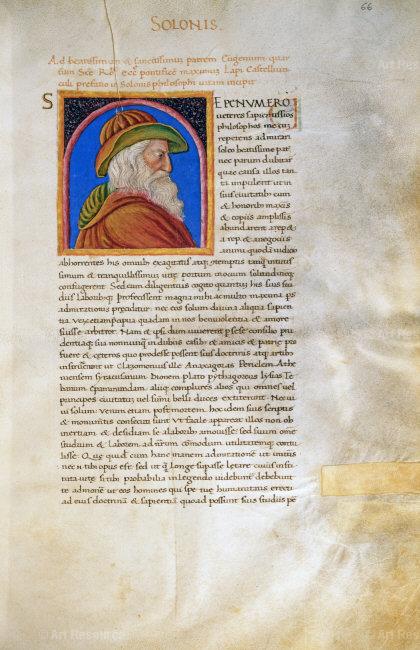 66
SOLONIS.
Ad beatissimum & sanctissimum patrem Eugenium quar
tum Sce Ro ecc pontificē maximum Lapi Castellun
culi prefatio in Solonis philosophi uitam incipit
S EPENVMERO
ueteres sapientissios
philosophos mecū
repetens admirari
soleo beatissime pat
nec parum dubitar
que causa illos tan
ta impulerit ut in
suis ciuitatib cum
& honorib maxis
& copiis amplissis
abundarent a rep &
a rep & a negociis
animū quodā iudicio
abhorrentes his omnib exagitatis atq tempus tanq in tutis
simum & tranquillissimum uite portum mocum solitudineq
confugerent Sed cum diligentius cogito quantum his suis stu
diis Laboribq profecissent magna mihi ac multo maxima ps
admirationis preaditur nec eos solum diuina aliqua sapien
tia
fuisse arbitror Nam & ipsi dum uiuerent pse consilio pru
dentiaq sua non nunq in dubiis casib & amicis & patrie pro
fuere & ceteros quo prodesse possent suis doctrinis atq artibus
instruxerunt ut Clazomenius ille Anaxagoras Periclem Athe
niensem syracusanum Dionem plato pythagoreus Lysias Te
binum Epaminundam aliiq complures alios qui omnes uel
principes ciuitatum uel summi belli duces extiterunt Nec ui
ui solum Verum etiam post mortem hoc idem suis scriptis
& monumentis consecuti sunt Vt facile appareat illos non ob
inertiam & desidiam se a laborib amouisse sed suum omne
studium & Laborem ad nostrum comodum utilitatemq contu
lisse Que quidē cum hanc manem admiratione ut initius
nec n tib opus est sed ut q Longe supasse letare cuius insti
tuta uite si tibi probabilia in legendo uidebunt debebunt
te admonere ut eos homines qui spe tue humanitatis erecti
ad eius doctrinā & sapientiā quoad possunt suis studiis pe
© Art Resource